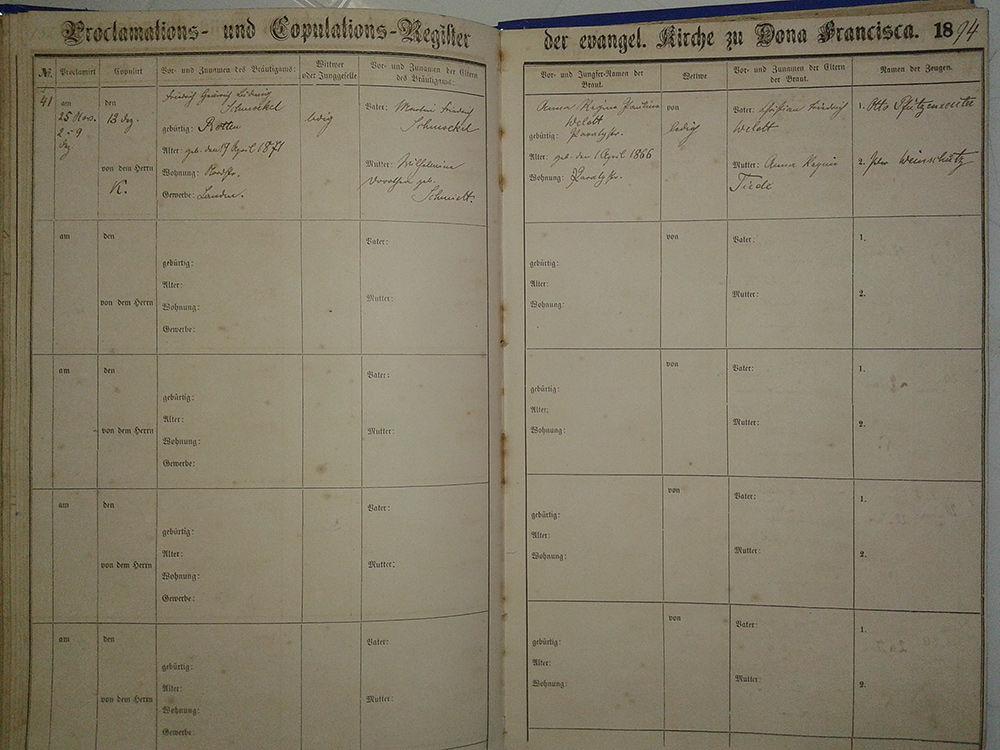 Proclamations- und Copulations-Register der evangel. Kirche zu Dona Francisca. 1894
№. Proclamirt Copulirt Vor- und Zunamen des Bräutigams: Wittwer oder Junggeselle Vor- und Zunamen der Eltern des Bräutigams:
Vor- und Jungfer-Namen der Braut. Wittwe Vor- und Zunamen der Eltern der Braut. Namen der Zeugen.
41
am
25 Nov.
2 - 9
Dez
den
13 Dez.
von dem Herrn
K.
Friedrich Heinrich Ludwig
Schmoekel
gebürtig: Rotten
Alter: geb. den 17 April 1871
Wohnung: Nordstr.
Gewerbe: Landm.
ledig
Vater: Martin Friedrich
Schmoekel
Mutter: Wilhelmine
Dorothea geb.
Schmidt.
Anna Regina Pauline
Welott
gebürtig: Paratystr.
Alter: geb. den 1 April 1866
Wohnung: Paratystr.
von
ledig
Vater: Christian Friedrich
Welott
Mutter: Anna Regin
Tiede
1. Otto Pfützenreuter
2. Peter Weinschütz
am
den
von dem Herrn
gebürtig:
Alter:
Wohnung:
Gewerbe:
Vater:
Mutter:
gebürtig:
Alter:
Wohnung:
von
Vater:
Mutter:
1.
2.
am
den
von dem Herrn
gebürtig:
Alter:
Wohnung:
Gewerbe:
Vater:
Mutter:
gebürtig:
Alter:
Wohnung:
von
Vater:
Mutter:
1.
2.
am
den
von dem Herrn
gebürtig:
Alter:
Wohnung:
Gewerbe:
Vater:
Mutter:
gebürtig:
Alter:
Wohnung:
von
Vater:
Mutter:
1.
2.
am
den
von dem Herrn
gebürtig:
Alter:
Wohnung:
Gewerbe:
Vater:
Mutter:
gebürtig:
Alter:
Wohnung:
von
Vater:
Mutter:
1.
2.